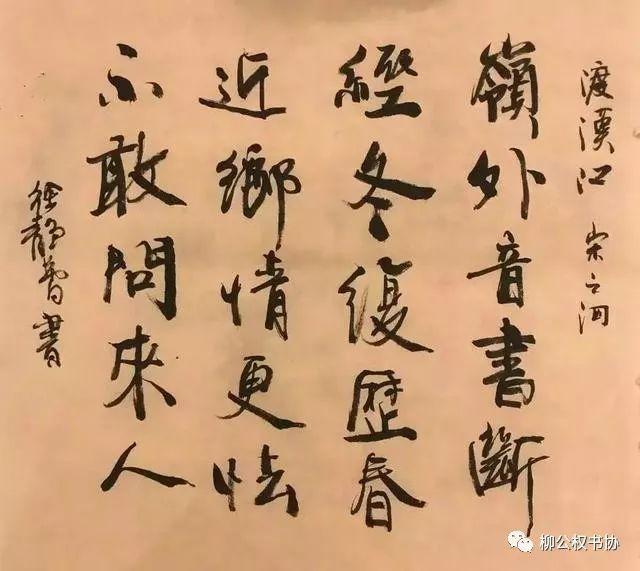 渡漢江 宋之问
嶺外音書斷
經冬復歷春
近鄉情更怯
不敢問來人
徐靜書
柳公权书协